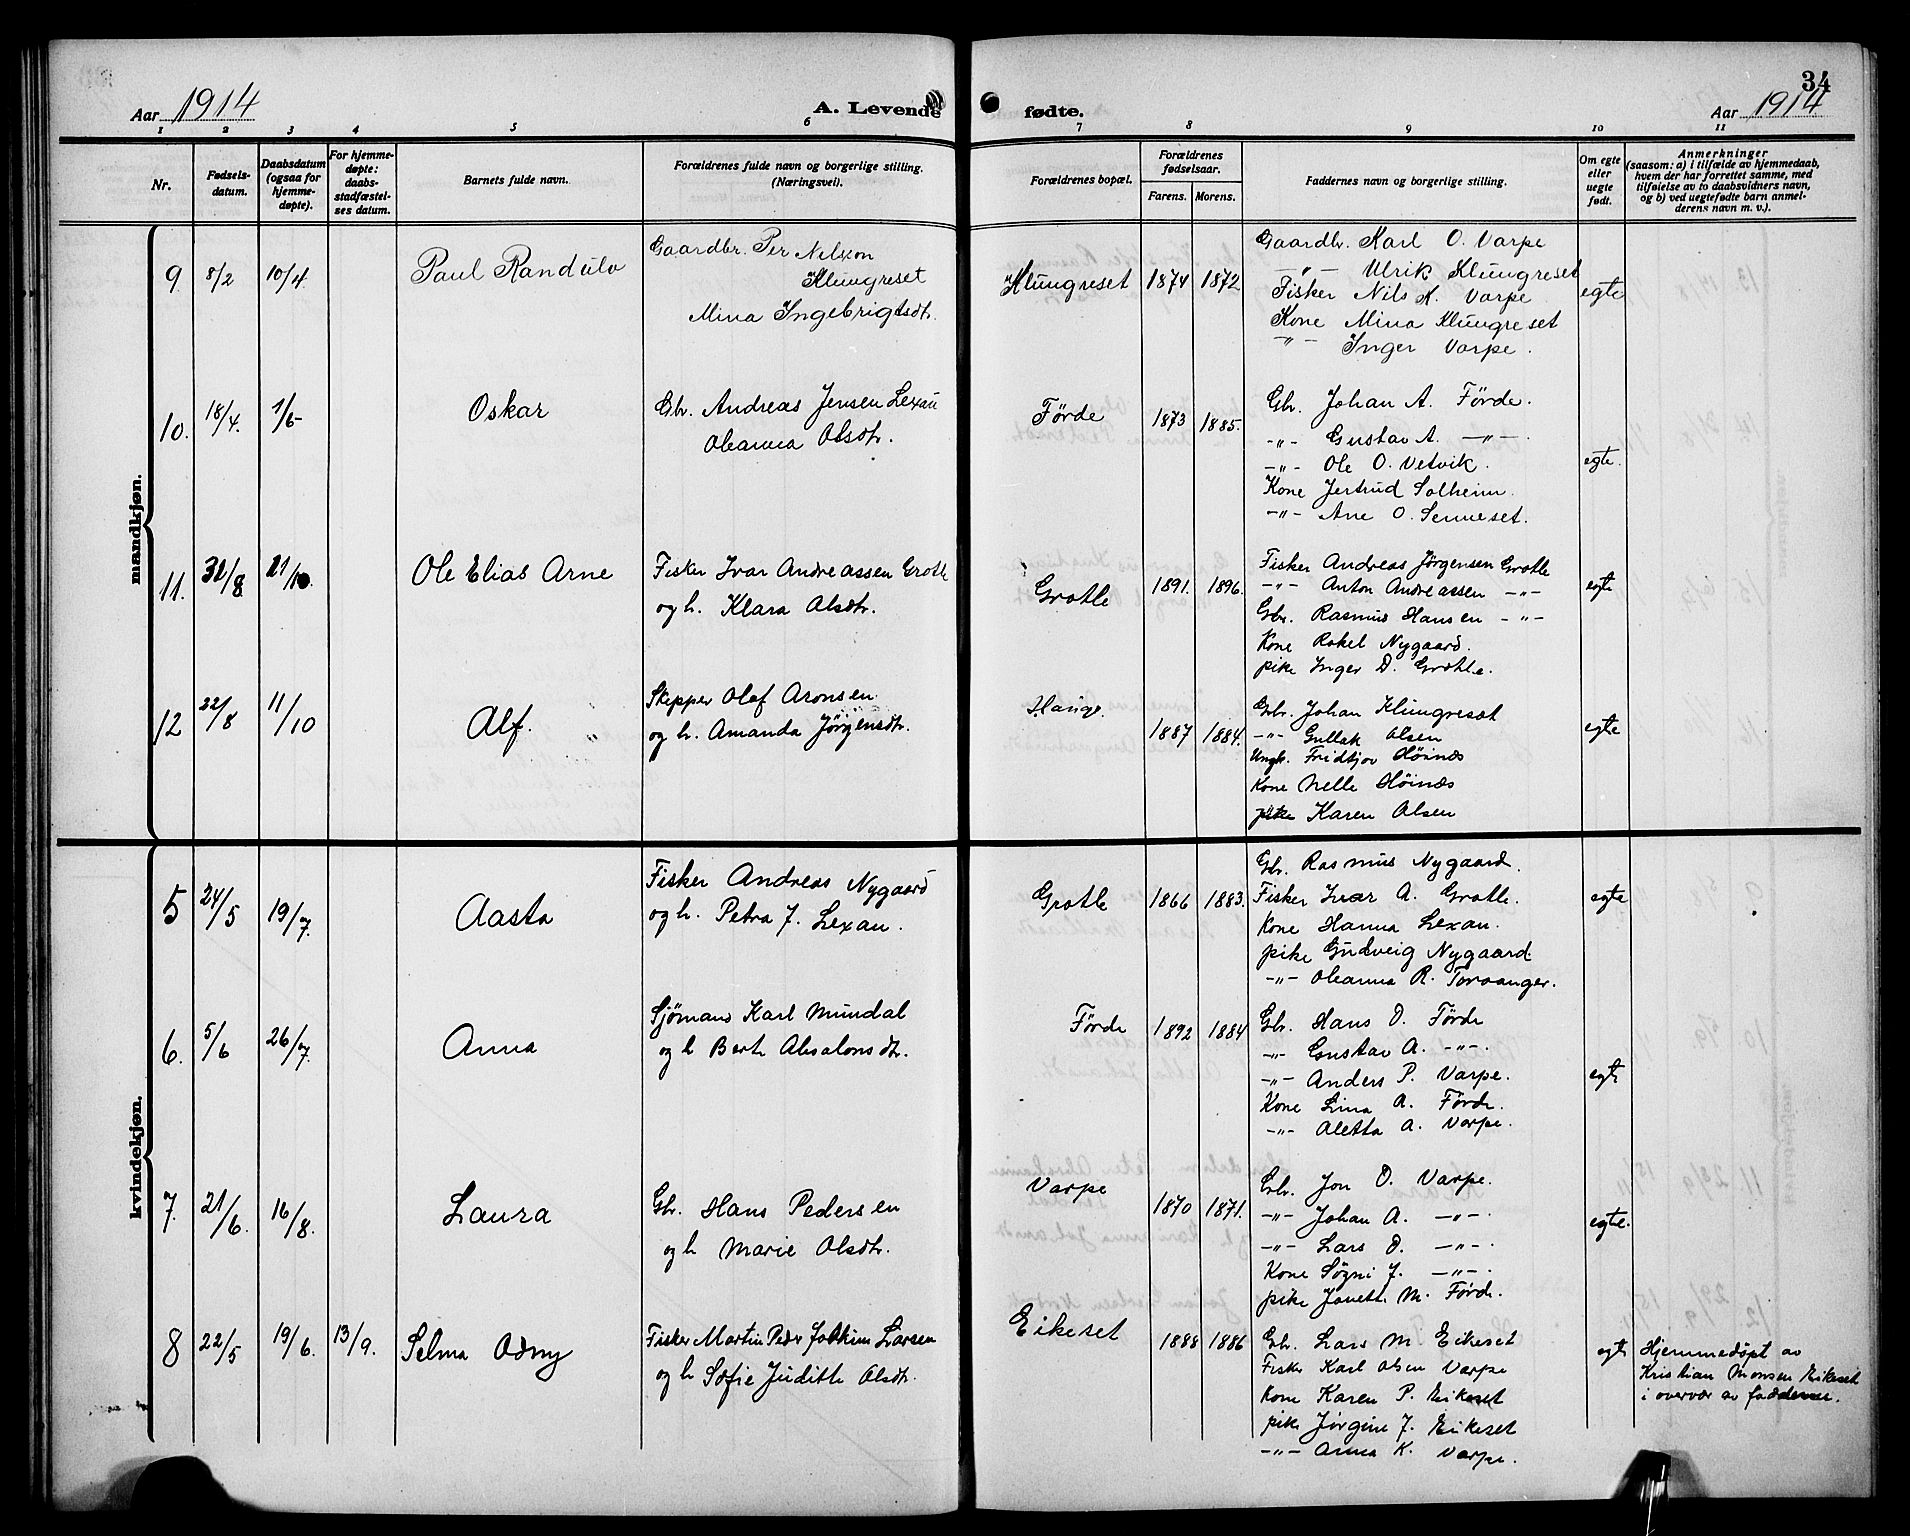 34
Aar 1914
A. Levende fødte.
Aar 1914
1 2 3 4 5 6 7 8 9 10 11
Nr.
Fødsels-
datum.
Daabsdatum
(ogsaa for
hjemme-
døpte).
For hjemme-
døpte:
daabs-
stadfæstel-
ses datum.
Barnets fulde navn.
Forældrenes fulde navn og borgerlige stilling.
(Næringsvei).
Forældrenes bopæl.
Forældrenes
fødselsaar.
Farens. Morens.
Faddernes navn og borgerlige stilling.
Om egte
eller
uegte
født.
Anmerkninger
(saasom: a) i tilfælde av hjemmedaab,
hvem der har forrettet samme, med
tilføielse av to daabsvidners navn,
og b) ved uegtefødte barn anmel-
derens navn m. v.).
mandkjøn.
9. 8/2 10/4 Paul Randulv
Gaardbr. Per Nilsson
Klungreset
Mina Ingebrigtsdtr.
Klungreset 1874 1872
Gaardbr. Karl O. Varpe
—"— Ulrik Klungreset
Fisker Nils A. Varpe
Kone Mina Klungreset
—"— Inger Varpe.
egte
10. 18/4. 1/6- Oskar
Gbr. Andreas Jensen Lexau
Oleanna Olsdtr.
Förde 1873 1885.
Gbr. Johan A. Förde.
-"- Gustav A. —"—
-"- Ole O. Vetvik.
Kone Jertrud Solheim.
-"- Ane O. Senneset.
egte.
11. 31/8 11/10. Ole Elias Arne
Fisker Ivar Andreassen Grotle
og h. Klara Olsdtr.
Grotle 1891. 1896.
Fisker Andreas Jørgensen Grotle
-"- Anton Andreassen -"-
Gbr. Rasmus Hansen -"-
Kone Rakel Nygaard.
pike Inger D. Grotle.
egte
12 22/8 11/10 Alf.
Skipper Olaf Aronsen
og h. Amanda Jørgensdtr.
Hauge. 1887 1884.
Gbr. Johan Klungreset
-"- Gullak Olsen
Ungk. Fridtjov Høinæs
Kone Nelle Høinæs
pike Karen Olsen
egte
kvindekjøn.
5 24/5 19/7. Aasta
Fisker Andreas Nygaard
og h. Petra J. Lexau.
Grotle 1866 1883.
Gbr. Rasmus Nygaard.
Fisker Ivar A. Grotle.
Kone Hanna Lexau.
pike Gudveig Nygaard
-"- Oleanna R. Torvanger.
egte
6. 5/6 26/7. Anna
Sjømand Karl Mundal
og h Berte Absalonsdtr.
Förde 1892 1884
Gbr. Hans D. Förde
-"- Gustav A. -"-.
-"- Anders P. Varpe.
Kone Lina A. Förde.
-"- Aletta A. Varpe.
egte
7. 21/6. 16/8. Laura
Gbr. Hans Pedersen
og h Marie Olsdtr.
Varpe 1870 1871.
Gbr. Jon D. Varpe.
-"- Johan A. —"—.
-"- Lars D. —"—.
Kone Søgni J. —"—.
pike Janette M. Förde.
egte.
8 22/5 19/6. 13/9. Selma Odny
Fisker Martin Peder Joakim Larsen
og h Sofie Judith Olsdtr.
Eikeset 1888 1886
Gbr. Lars M. Eikeset
Fisker Karl Olsen Varpe
Kone Karen P. Eikeset
pike Jørgine J. Eikeset
-"- Anna K. Varpe.
egte
Hjemmedøpt av
Kristian Monsen Eikeset
i overvær av fadderne.